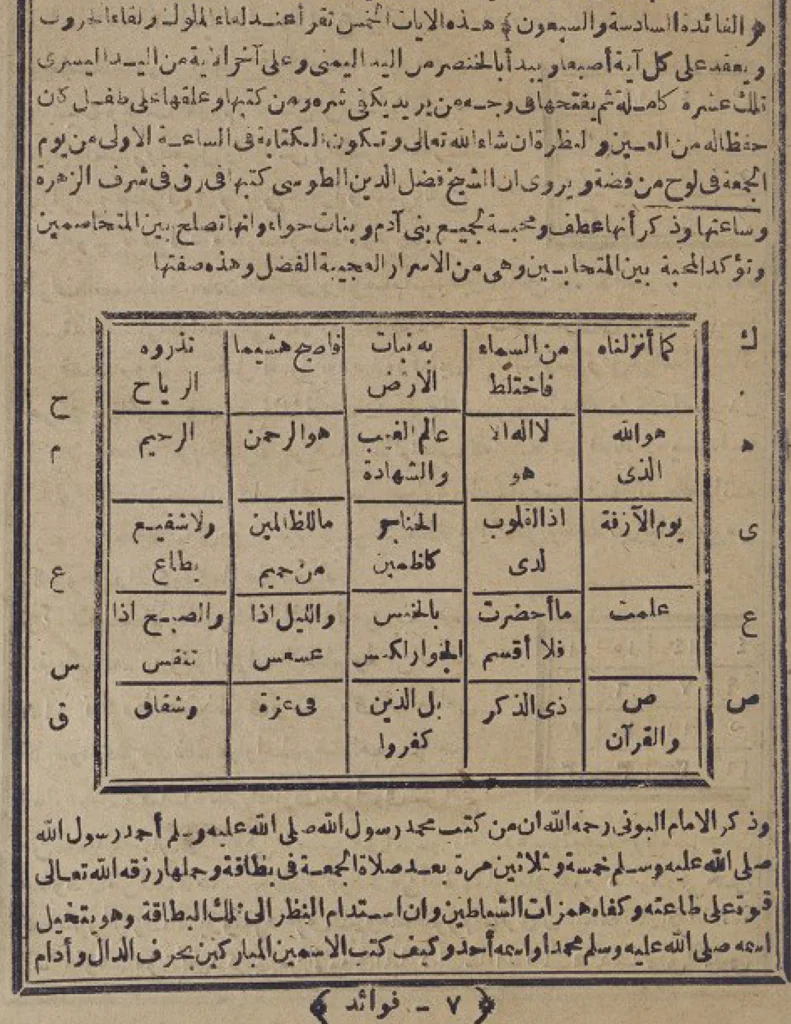 ﴿الفائدة السادسة والسبعون﴾ هذه الايات الخمس تقرأ عند لقاء الملوك ولقاء الحروب
ويعقد على كل آية أصبعا ويبدأ بالخنصر من اليد اليمنى وعلى آخر الاية من اليد اليسرى
تلك عشرة كاملة ثم يفتحها فى وجه من يريد يكفى شره ومن كتبها وعلقها على طفل كان
حفظا له من العين والنظرة ان شاء الله تعالى وتكون الكتابة فى الساعة الاولى من يوم
الجمعة فى لوح من فضة ويروى ان الشيخ فضل الدين الطوسى كتبها فى رق فى شرف الزهرة
وساعتها وذكر أنها عطف ومحبة لجميع بنى آدم وبنات حواء وانها تصلح بين المتخاصمين
وتؤكد المحبة بين المتحابين وهى من الاسرار العجيبة الفضل وهذه صفتها
ك كما أنزلناه من السماء فاختلط به نبات الارض فاصبح هشيما تذروه الرياح ح
ه هو الله الذى لا اله الا هو عالم الغيب والشهادة هو الرحمن الرحيم م
ى يوم الآزفة اذ القلوب لدى الحناجر كاظمين ما للظالمين من حميم ولا شفيع يطاع ع
ع علمت ما أحضرت فلا أقسم بالخنس الجوار الكنس والليل اذا عسعس والصبح اذا تنفس س
ص ص والقرآن ذى الذكر بل الذين كفروا فى عزة وشقاق ق
وذكر الامام البونى رحمه الله ان من كتب محمد رسول الله صلى الله عليه وسلم أحمد رسول الله
صلى الله عليه وسلم خمسة وثلاثين مرة بعد صلاة الجمعة فى بطاقة وحملها رزقه الله تعالى
قوة على طاعته وكفاه همزات الشياطين وان استدام النظر الى تلك البطاقة وهو يتخيل
اسمه صلى الله عليه وسلم محمد او اسمه أحمد وكيف كتب الاسمين المباركين بحرف الدال وأدام
﴿ ٧ - فوائد ﴾